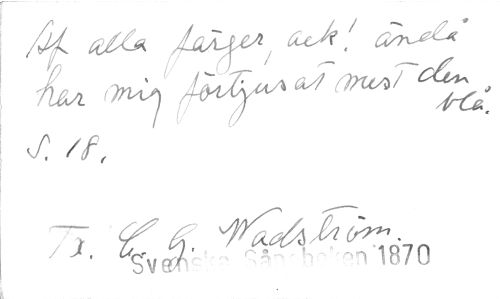 Af alla färger, ack! ändå
har mig förtjusat mest den
blå.
S. 18.
Tx. C. G. Wadström.
Svenska Sångboken 1870